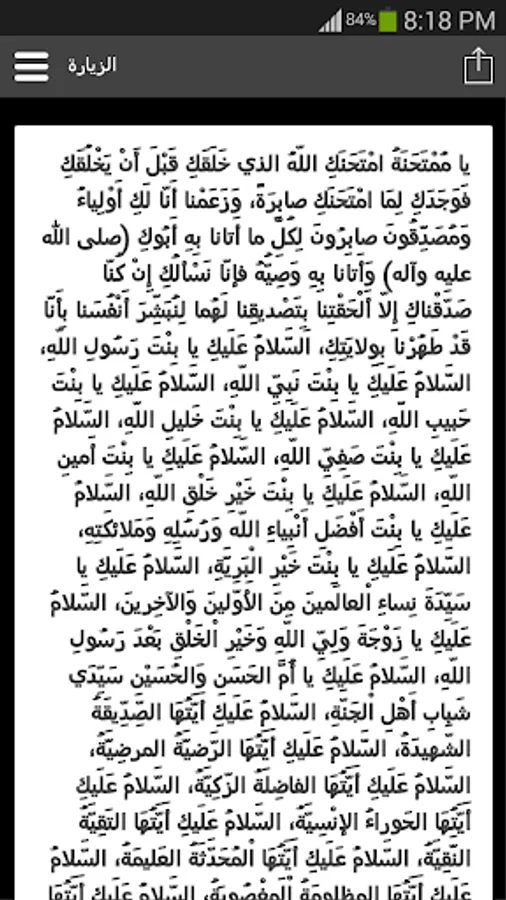 84% 8:18 PM
الزيارة
يا مُمْتَحَنَةُ امْتَحَنَكِ اللّهُ الذي خَلَقَكِ قَبْلَ أَنْ يَخْلُقَكِ
فَوَجَدَكِ لِمَا امْتَحَنَكِ صابِرَةً، وَزَعَمْنا أنّا لَكِ أوْلِياءُ
وَمُصَدِّقُونَ صابِرُونَ لِكُلِّ ما أتانا بِهِ أبُوكِ (صلى الله
عليه وآله) وَأتانا بِهِ وَصِيُّهُ فإنّا نَسْألُكِ إنْ كُنّا
صَدَّقْناكِ إلّا ألْحَقْتِنا بِتَصْديقِنا لَهُما لِنُبَشِّرَ أنْفُسَنا بِأنّا
قَدْ طَهُرْنا بِوِلايَتِكِ، اَلسَّلامُ عَلَيكِ يا بِنْتَ رَسُولِ اللّهِ،
السَّلامُ عَلَيكِ يا بِنْتَ نَبِيّ اللّهِ، السَّلامُ عَلَيكِ يا بِنْتَ
حَبيبِ اللّهِ، السَّلامُ عَلَيكِ يا بِنْتَ خَليلِ اللّهِ، السَّلامُ
عَلَيكِ يا بِنْتَ صَفِيّ اللّهِ، السَّلامُ عَلَيكِ يا بِنْتَ أمينِ
اللّهِ، السَّلامُ عَلَيكِ يا بِنْتَ خَيْرِ خَلْقِ اللّهِ، السَّلامُ
عَلَيكِ يا بِنْتَ أفْضَلِ أنْبِياءِ اللّه وَرُسُلِهِ وَمَلائكَتِهِ،
السَّلامُ عَلَيكِ يا بِنْتَ خَيْرِ الْبَرِيَّةِ، السَّلامُ عَلَيكِ يا
سَيِّدَةَ نِساءِ اْلعالَمينَ مِنَ الأوّلينَ وَالآخِرينَ، السَّلامُ
عَلَيكِ يا زَوْجَةَ وَلِيّ اللّهِ وَخَيْرِ اْلخَلْقِ بَعْدَ رَسُولِ
اللّهِ، السَّلامُ عَلَيكِ يا أُمَّ الحَسَنِ وَالحُسَيْنِ سَيِّدَي
شَبابِ أهْلِ اْلجَنَّةِ، السَّلامُ عَلَيكِ أيَّتُهَا الصِّدّيقَةُ
الشَّهيدَةُ، السَّلامُ عَلَيكِ أيَّتُهَا الرَّضيَّةُ المرضِيَّةُ،
السَّلامُ عَلَيكِ أيَّتُهَا الفاضِلَةُ الزَّكِيَّةُ، السَّلامُ عَلَيكِ
أيَّتُهَا الحَوراءُ الإنْسِيَّةُ، السَّلامُ عَلَيكِ أيَّتُهَا التَقِيَّةُ
النَّقِيَّةُ، السَّلامُ عَلَيكِ أيَّتُهَا اْلمُحَدَّثَةُ العَليمَةُ، السَّلامُ
عَلَيكِ أيَّتُهَا المظلومَةُ اْلمَغْصُوبَةُ، السَّلامُ عَلَيكِ أيَّتُهَا